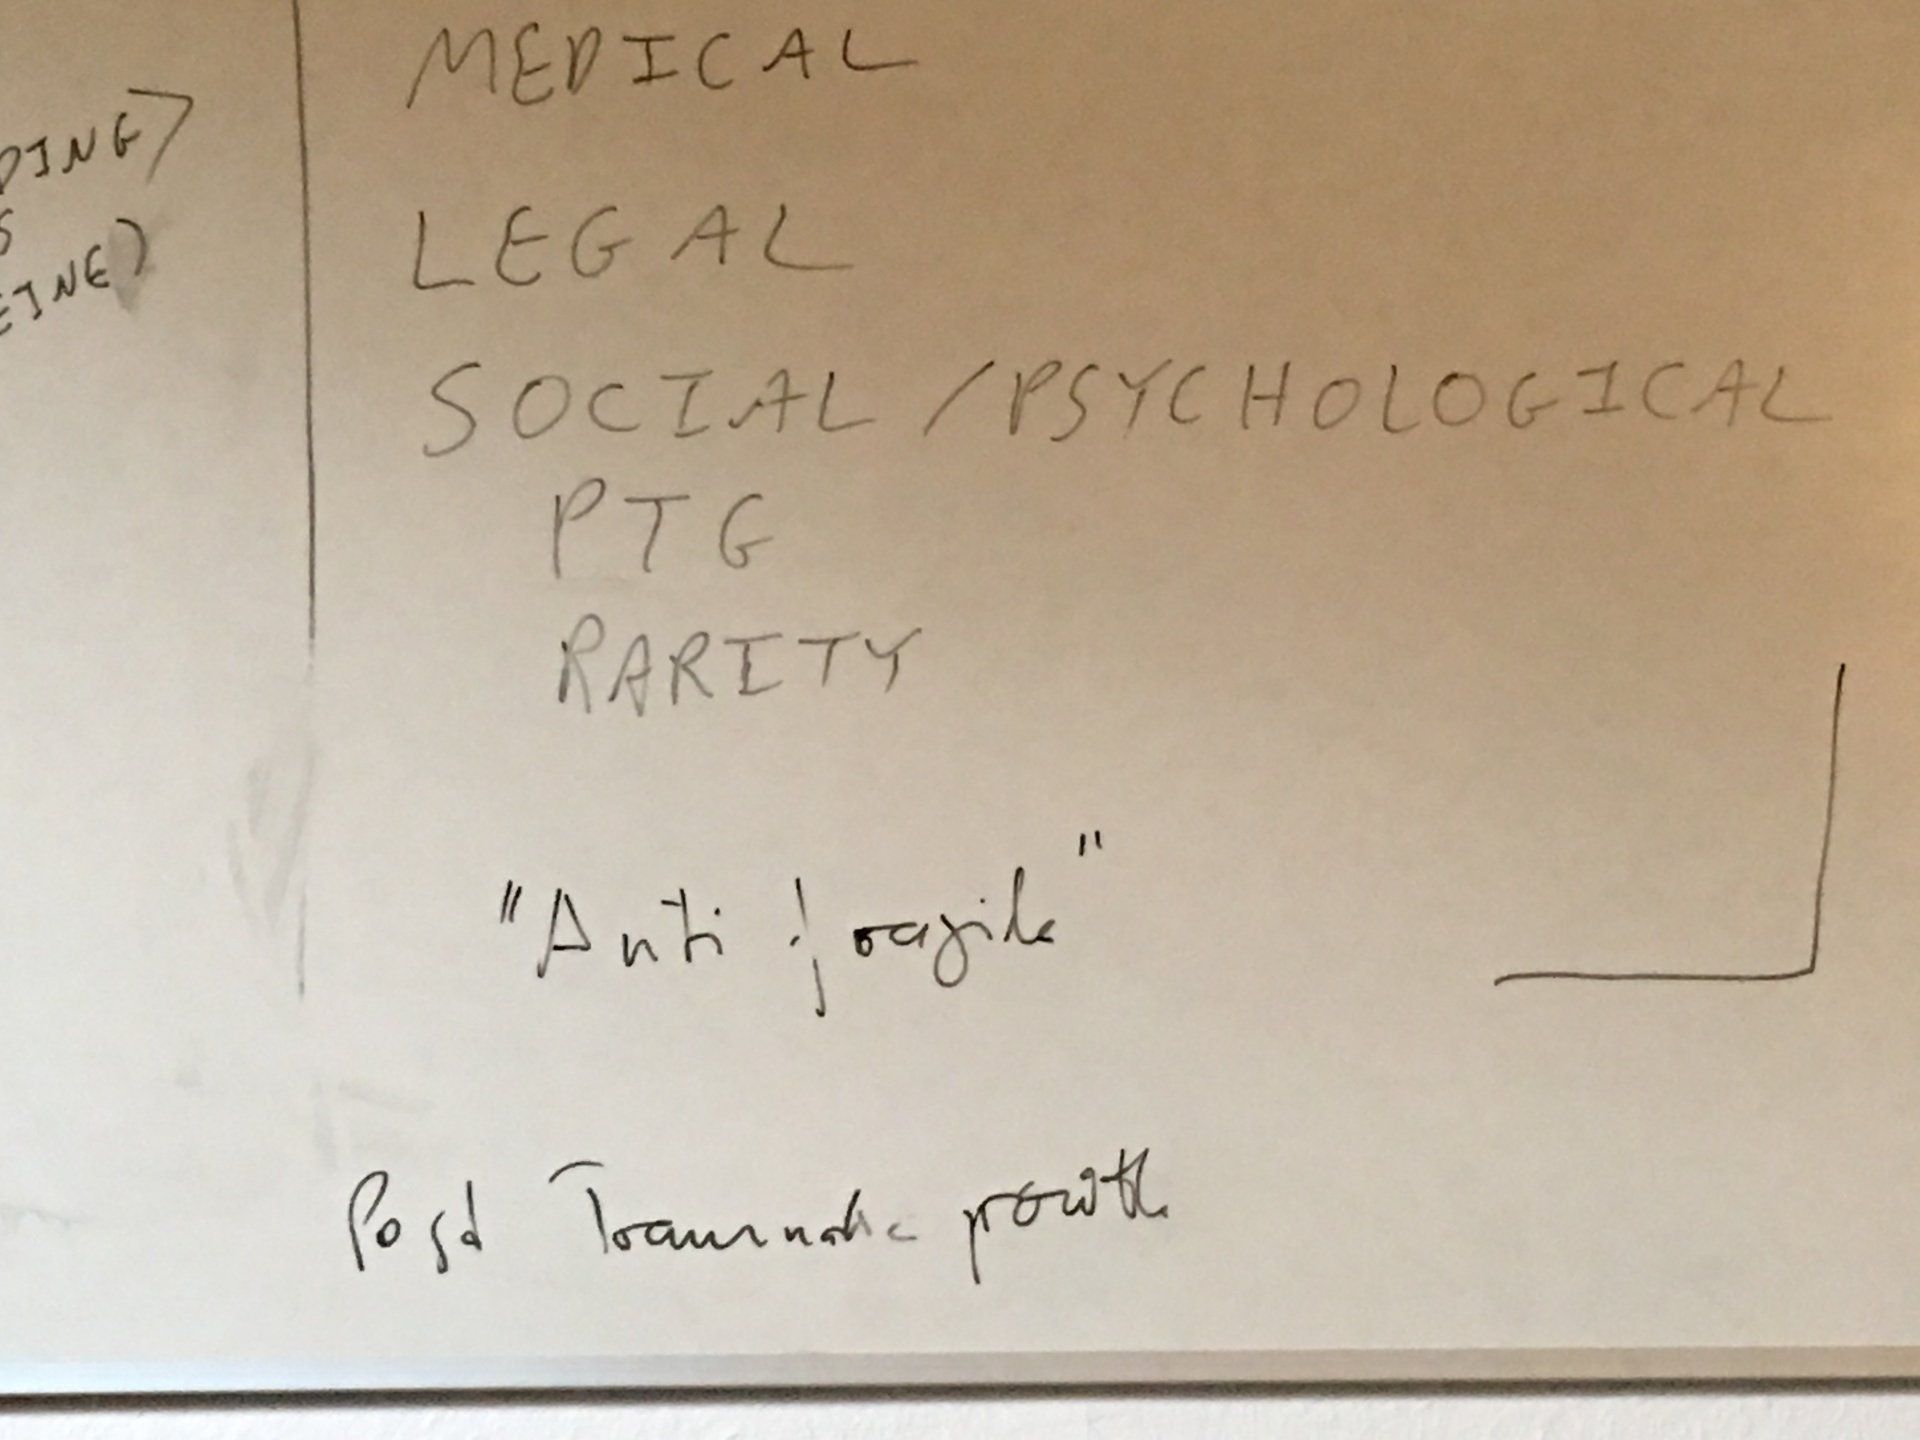 MEDICAL
LEGAL
SOCIAL / PSYCHOLOGICAL
PTG
RARITY
"Anti fragile"
Post Traumatic growth
DING>
S
EINE)